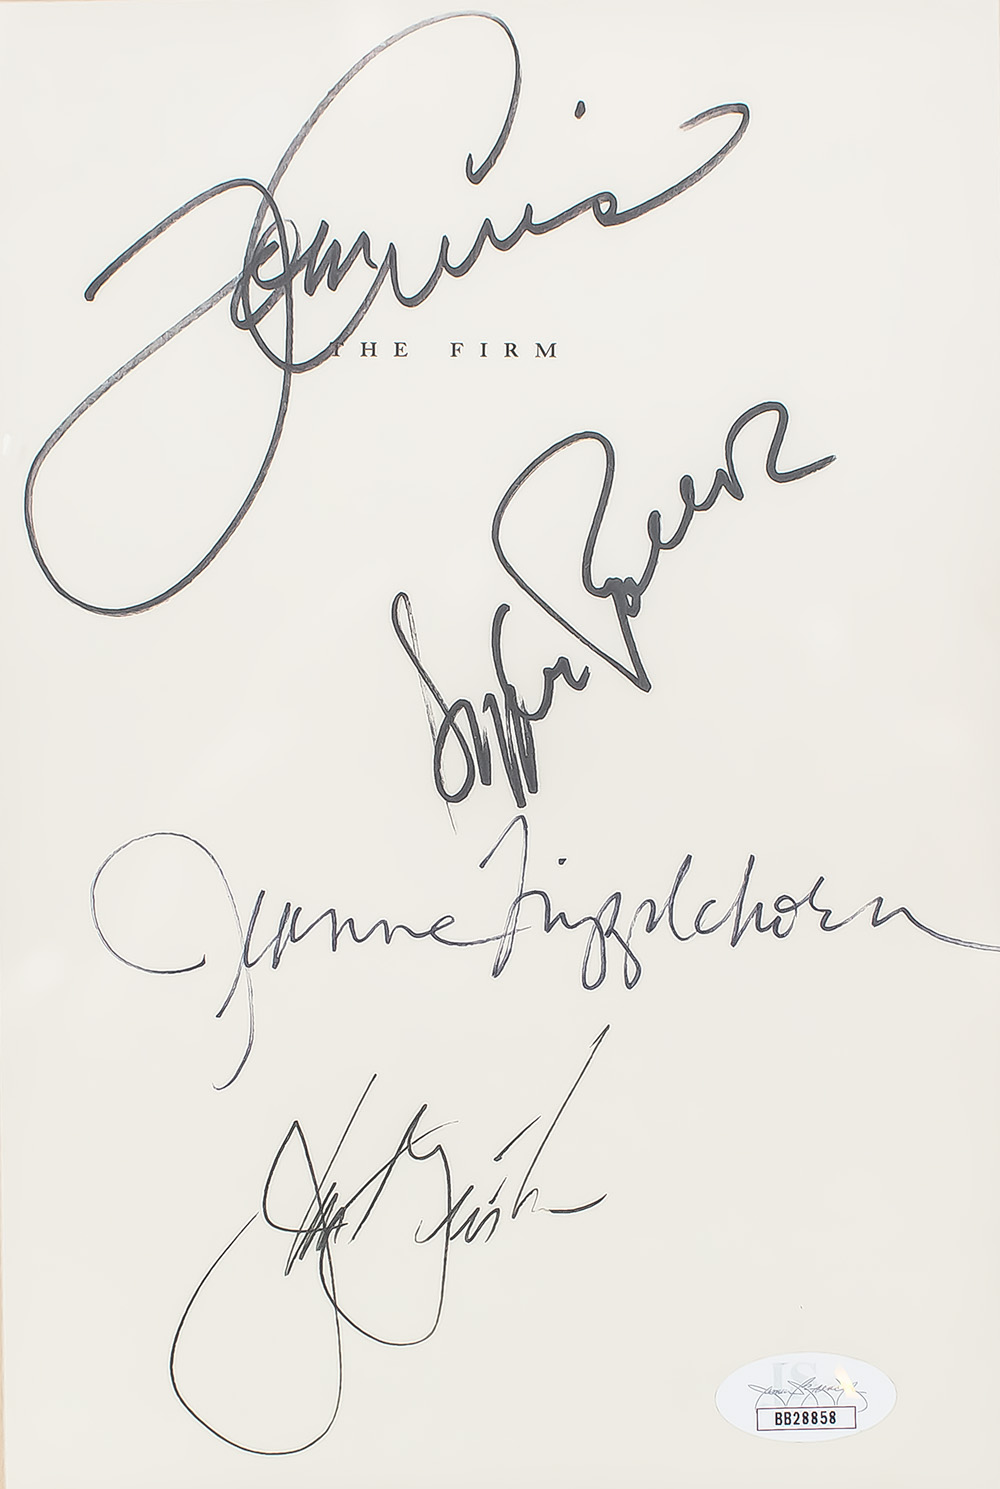 Tom Cruise
THE FIRM
Jeanne Tripplehorn
John Grisham
BB28858